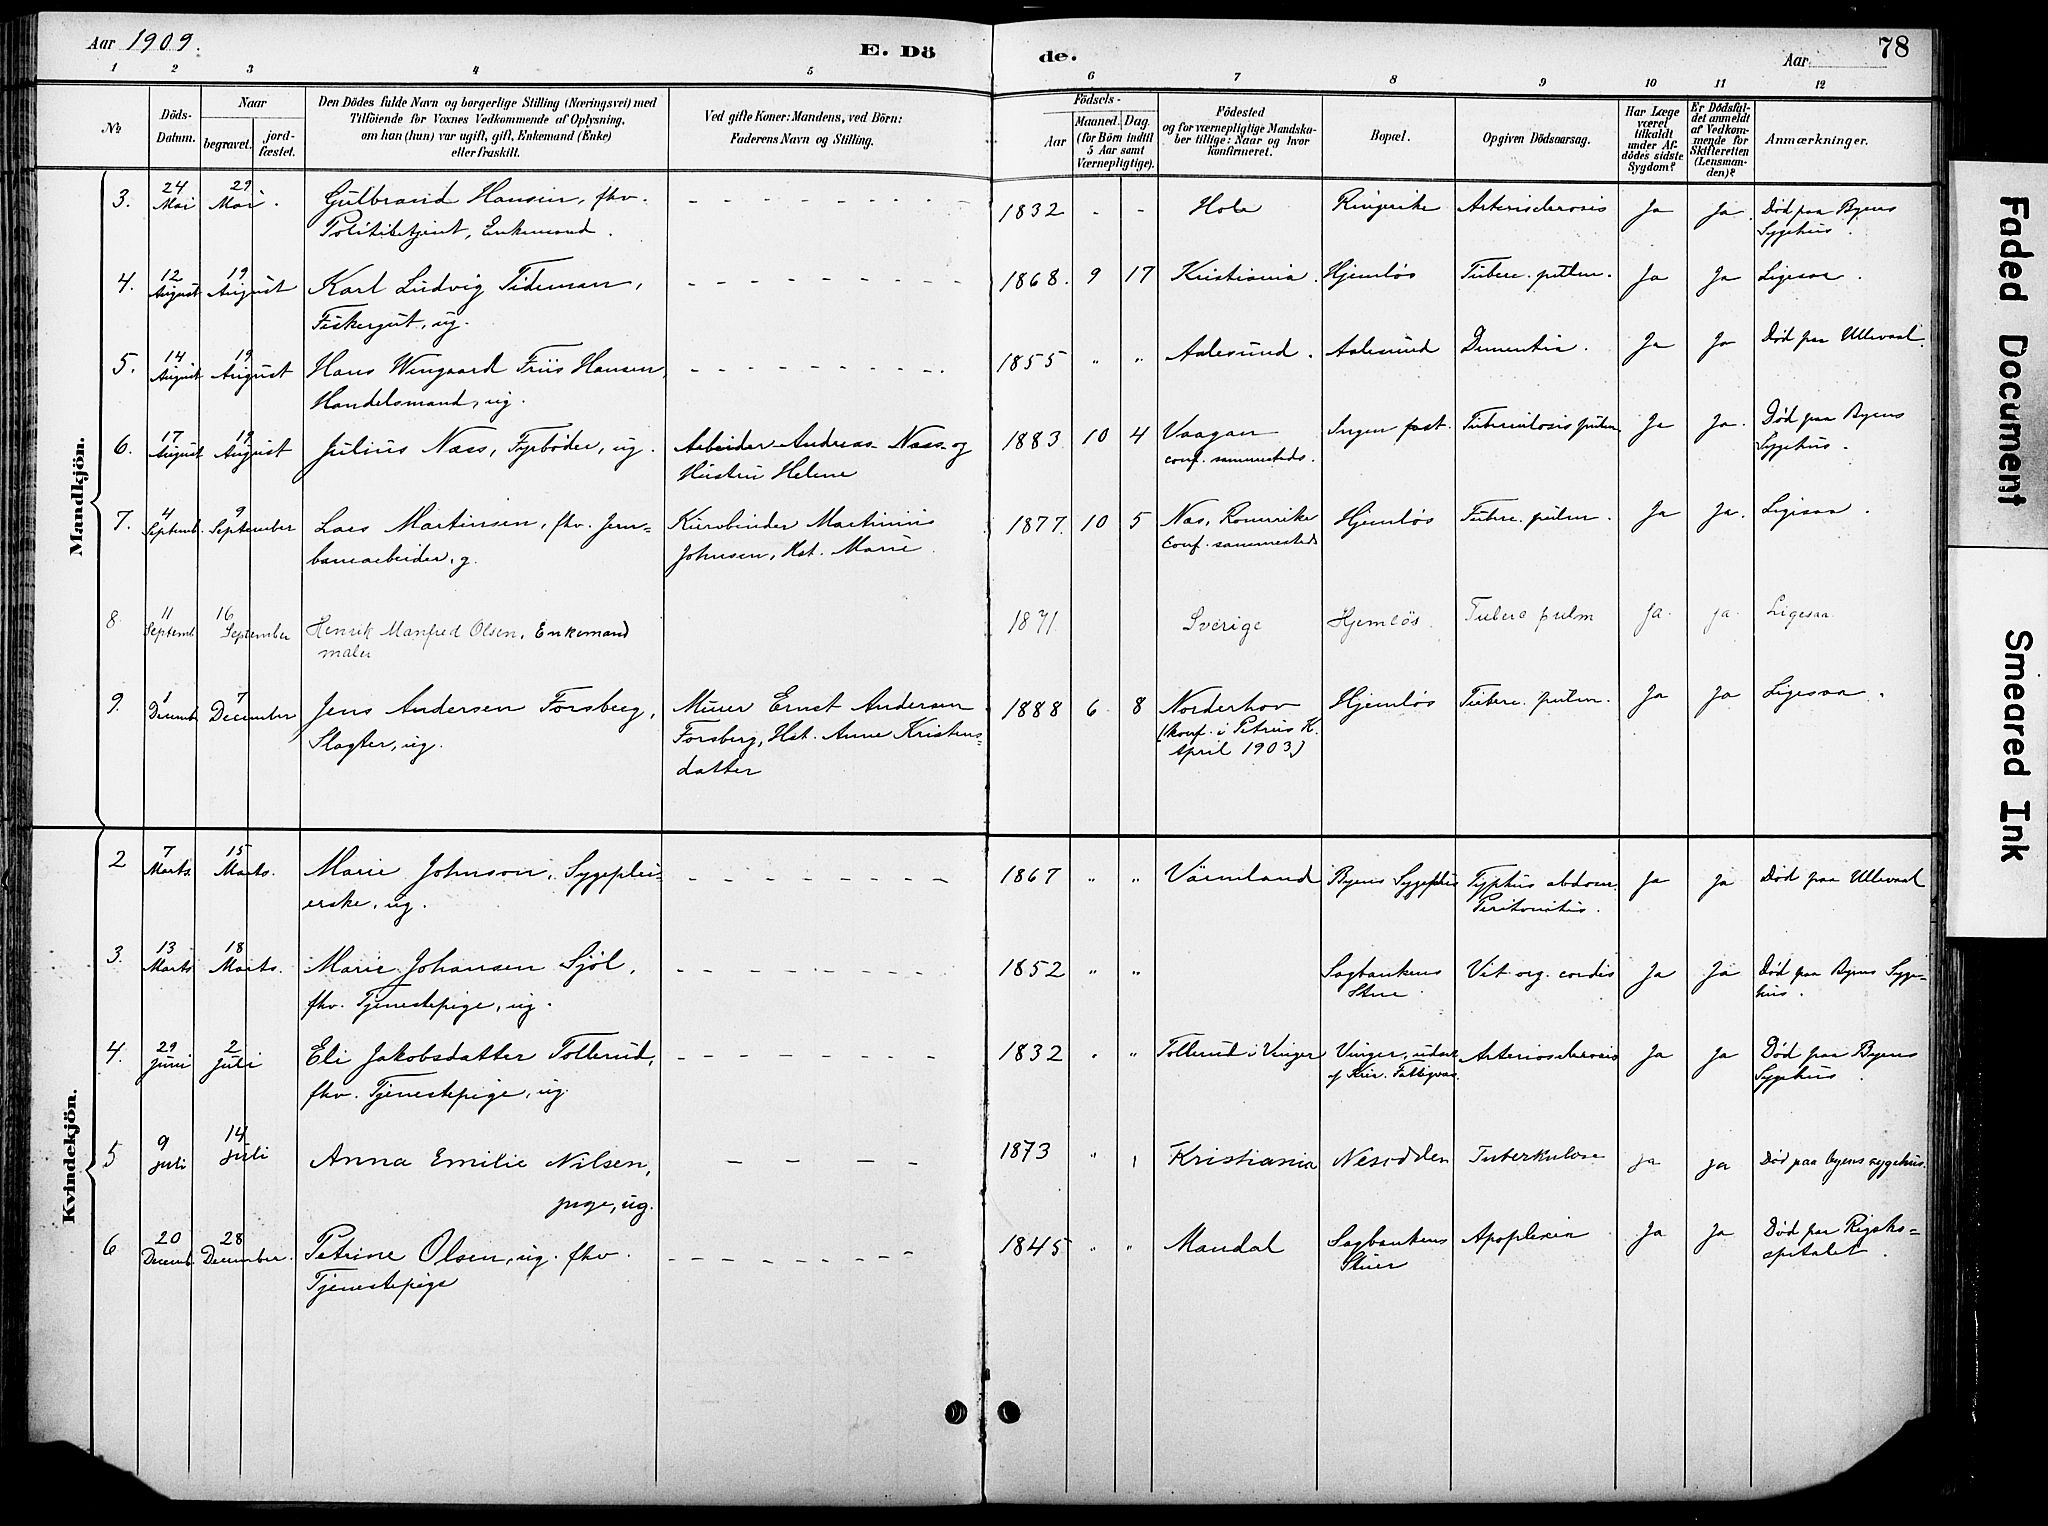 Aar 1909.
E. Dö
de.
Aar
78
1 2 3 4 5 6 7 8 9 10 11 12
No
Döds-Datum.
Naar
begravet.
jord-fæstet.
Den Dödes fulde Navn og borgerlige Stilling (Næringsvei) med
Tilföiende for Voxnes Vedkommende af Oplysning,
om han (hun) var ugift, gift, Enkemand (Enke)
eller fraskilt.
Ved gifte Koner: Mandens, ved Börn:
Faderens Navn og Stilling.
Födsels-
Aar
Maaned. Dag.
(for Börn indtil
5 Aar samt
Værnepligtige).
Födested
og for værnepligtige Mandska-
ber tillige: Naar og hvor
konfirmeret.
Bopæl.
Opgiven Dödsaarsag.
Har Læge
været
tilkaldt
under Af-
dödes sidste
Sygdom?
Er Dödsfal-
det anmeldt
af Vedkom-
mende for
Skifteretten
(Lensman-
den)?
Anmærkninger.
Mandkjön.
3. 24 Mai 29 Mai Gulbrand Hansen, fhv. 1832 - - Hole Ringerike Arteriosclerosis Ja Ja. Död paa Byens
Politibetjent, Enkemand. Sygehus.
4. 12 August 19 August Karl Ludvig Tideman, 1868. 9 17 Kristiania. Hjemløs Tuberc. pulm. Ja Ja Ligesaa.
Fiskergut, ug.
5. 14 August 19 August Hans Wengaard Friis Hansen, 1855 " " Aalesund. Aalesund Dementia. Ja Ja Død paa Ullevaal.
Handelsmand, ug.
6. 17 August 19 August Julius Næss, Fyrbøder, ug. Arbeider Andreas Næss og 1883 10 4 Vaagan Ingen fast. Tuberculosis pulm Ja Ja. Død paa Byens
Hustru Helene conf. sammesteds. Sygehus.
7. 4 Septemb. 9 September Lars Martinsen, fhv. Jern- Kurvbinder Martinius 1877. 10 5 Næs, Romerike Hjemløs Tuberc. pulm. Ja Ja. Ligesaa.
banearbeider, g. Johnsen, Hst. Marie. Conf. sammesteds
8. 11 Septemb 16 September Henrik Manfred Olsen, Enkemand 1871 Sverige Hjemløs. Tuberc pulm Ja. ja. Ligesaa
maler
9. 1 Decemb. 7 December Jens Andersen Forsberg, Murer Ernst Andersen 1888 6 8 Norderhov Hjemløs Tuberc. pulm. Ja Ja Ligesaa.
Slagter, ug. Forsberg, Hst. Anne Kristens- (konf. i Petrus K.
datter April 1903)
Kvindekjön.
2 7 Marts. 15 Marts. Marie Johnson, Sygeplei- 1867 " " Värmland Byens Sygehus Typhus abdom. Ja Ja Død paa Ullevaal
erske, ug. Peritonitis.
3. 13 Marts 18 Marts. Marie Johansen Sjöl, 1852 " " Sagbankens Vit. org. cordis Ja Ja Død paa Byens Syge-
fhv. Tjenestepige, ug. Stue. hus.
4. 29 Juni 2 Juli Eli Jakobsdatter Tollerud, 1832 " " Tollerud i Vinger Vinger, Arteriosclerosis Ja Ja Død paa Byens
fhv. Tjenestepige, ug. af Kria. Fattigvæs. Sygehus.
5 9 juli 14 juli Anna Emilie Nilsen, 1873 " Kristiania Nesodden Tuberkulose ja ja Død paa byens sygehus.
pige, ug.
6 20 Decemb. 28 December. Petrine Olsen, ug. fhv. 1845 " " Mandal Sagbankens Apoplexia Ja Ja Død paa Rigsho-
Tjenestepige Stuer spitalet.
Faded Document
Smeared Ink